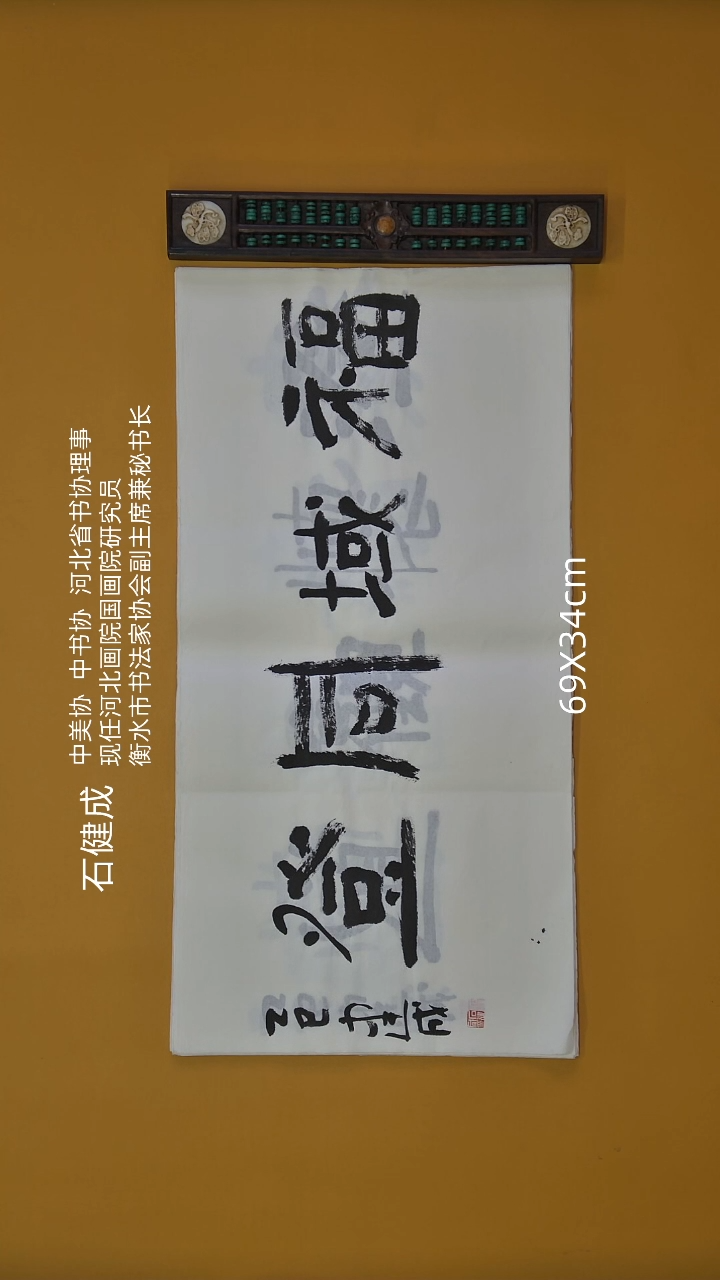 石健成
中美协 中书协 河北省书协理事
现任河北画院国画院研究员
衡水市书法家协会副主席兼秘书长
福域同登
乙巳
69X34cm